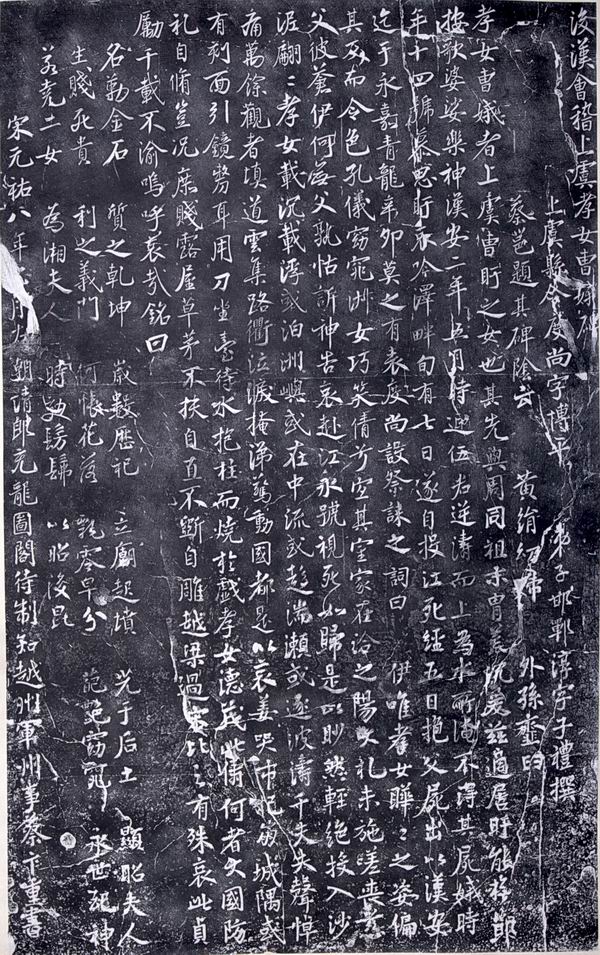 後漢會稽上虞孝女曹娥碑
上虞縣令度尚字博平 弟子邯鄲淳字子禮撰
蔡邕題其碑陰云 黃絹幼婦 外孫齏臼
孝女曹娥者上虞曹盱之女也其先與周同祖末胄荒沉爰茲適居盱能撫節
按歌婆娑樂神漢安二年五月時迎伍君逆濤而上為水所淹不得其屍娥時
年十四號慕思盱哀吟澤畔旬有七日遂自投江死經五日抱父屍出以漢安
迄于永嘉青龍辛卯莫之有表度尚設祭誄之詞曰 伊唯孝女曄曄之姿偏
其反而令色孔儀窈窕淑女巧笑倩兮宜其室家在洽之陽大禮未施嗟喪慈
父彼蒼伊何無父孰怙訴神告哀赴江永號視死如歸是以眇然輕絕投入沙
泥翩翩孝女載沉載浮或泊洲嶼或在中流或趨湍瀨或逐波濤千夫失聲悼
痛萬餘觀者填道雲集路衢泣淚掩涕驚動國都是以哀姜哭市杞崩城隅或
有刻面引鏡剺耳用刀坐臺待水抱柱而燒於戲孝女德茂此儔何者大國防
礼自脩豈况庶賤露屋草茅不扶自直不斲自雕越梁過宋比之有殊哀此貞
勵千載不渝嗚呼哀哉銘曰
名勒金石 質之乾坤 歲數歷祀 立廟起墳 光于后土 顯昭夫人
生賤死貴 利之義門 何悵花落 飄零早分 葩艷窈窕 永世配神
若堯二女 為湘夫人 時効髣髴 以昭後昆
宋元祐八年 月 朝請郎充龍圖閣待制知越州軍州事蔡卞重書